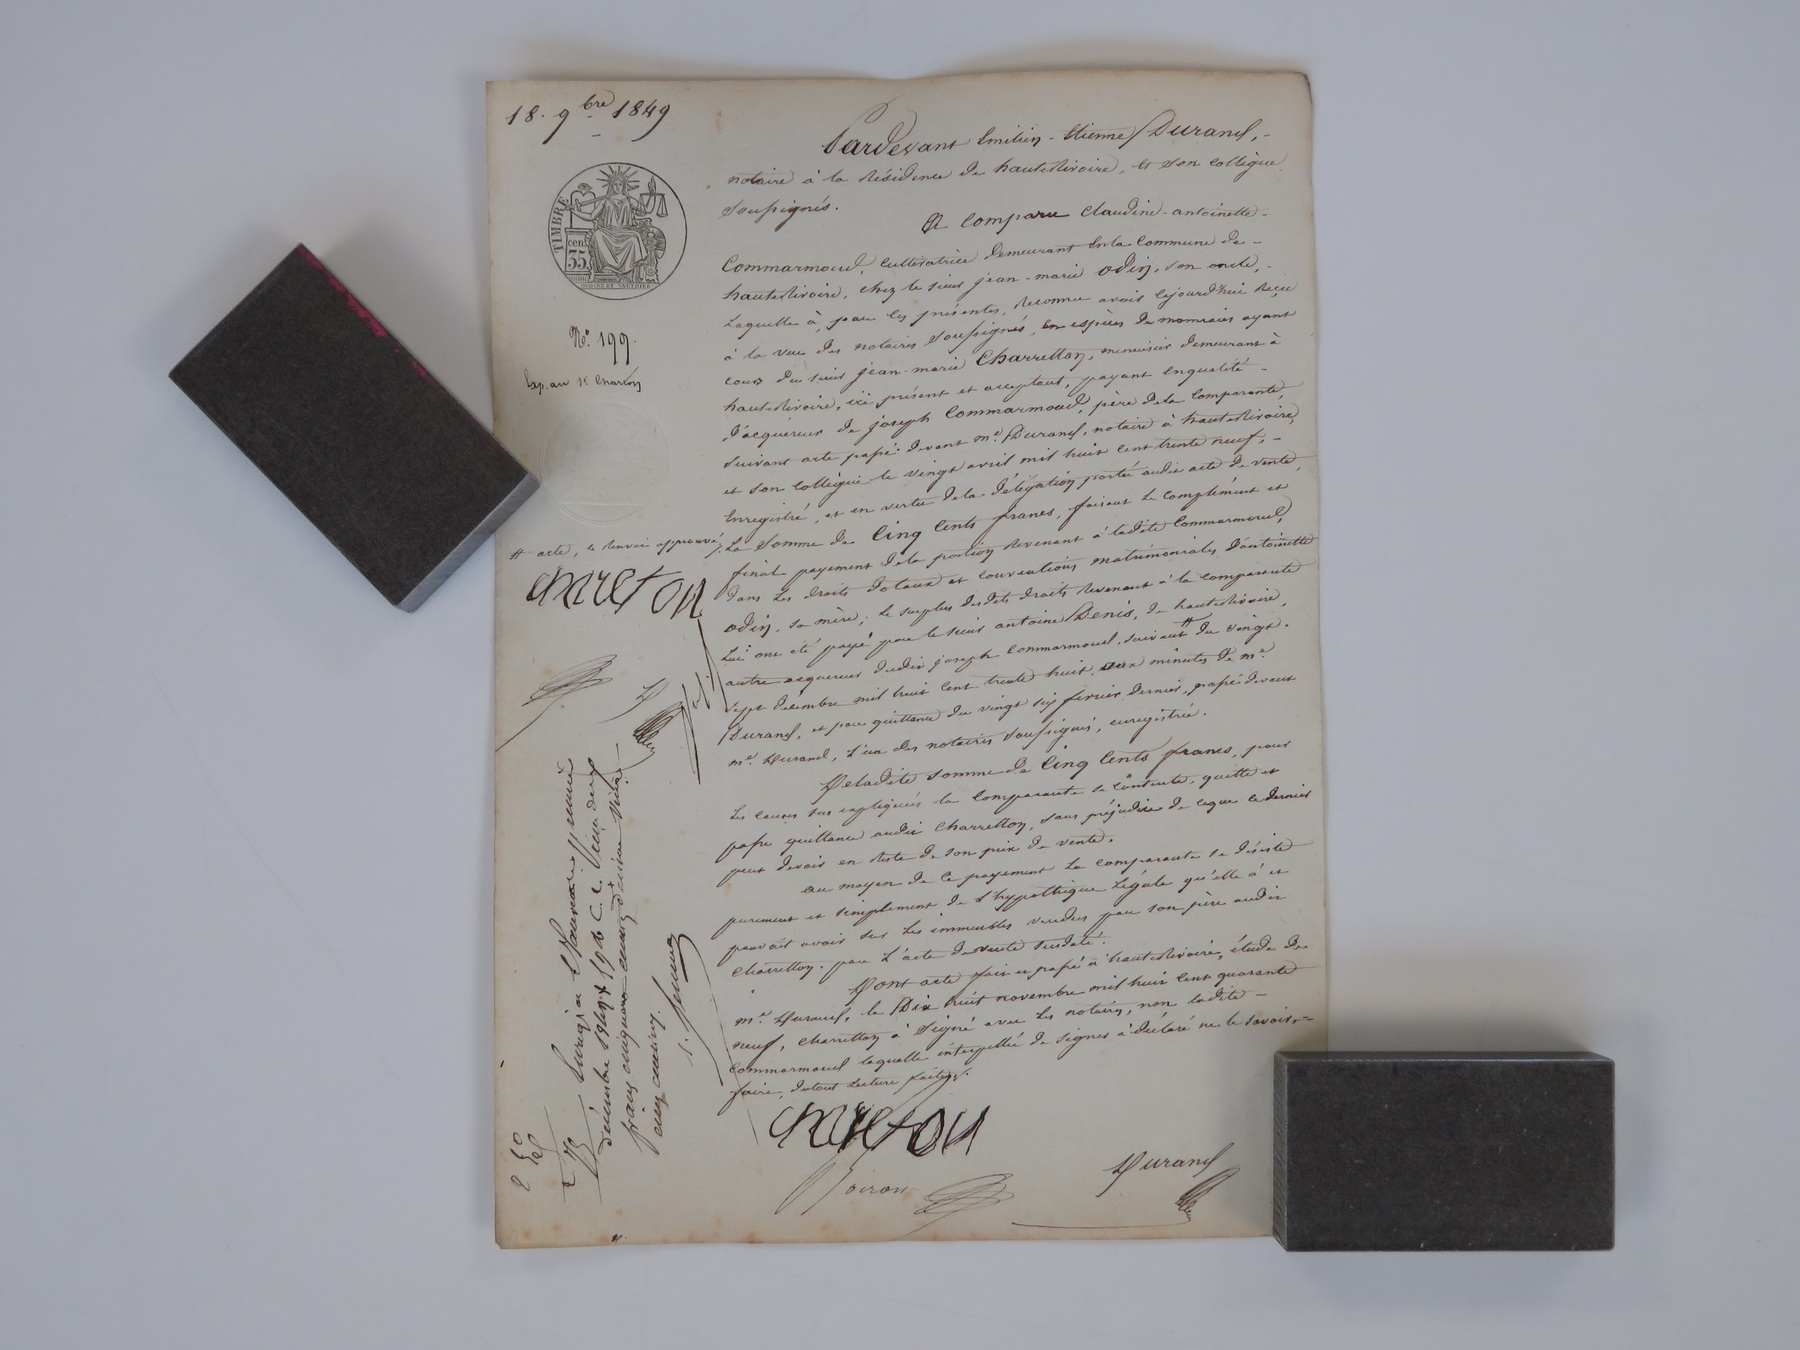 18. 9bre 1849
TIMBRE
cent
35
No. 199.
Exp. au Sr Charreton
# acte, le renvoi approuvé,
Charreton
Pardevant Emilien-Etienne Durand, -
notaire à la Résidence de hauterivoire, et son collègue
soussignés.
A Comparu Claudine-antoinette-
Commarmond, cultivatrice demeurant en la commune de -
hauterivoire, chez le sieur jean-marie Odin, son oncle, -
Laquelle à, par les présentes, Reconnu avoir cejourd'hui Reçu
à la vue des notaires soussignés, en espèces de monnaies ayant
cours du sieur jean-marie Charretton, menuisier demeurant à
hauterivoire, ici présent et acceptant, payant enqualité -
d'acquereur de joseph Commarmond, père dela Comparante,
suivant acte passé devant me. Durand, notaire à hauterivoire,
et son collègue le vingt avril mil huit cent trente neuf, -
Enregistré, et en vertu dela délégation portée audit acte de vente,
La Somme de Cinq Cents francs, faisant le complément et
final payement dela portion Revenant à ladite Commarmond,
dans les droits dotaux et conventions matrimoniales d'antoinette
odin, sa mère; le surplus desdits droits Revenant à la comparante
Lui ont été payé par le sieur antoine Denis, de hauterivoire,
autre acquereur dudit joseph Commarmond, suivant # du vingt-
sept décembre mil huit cent trente huit, aux minutes de me.
Durand, et par quittance du vingt six février dernier, passé devant
me. Durand, l'un des notaires soussignés, enregistrée.
De ladite somme de Cinq Cents francs, pour
les causes sus expliquées la Comparante se contente, quitte et
passe quittance audit Charretton, sans préjudice de ceque ce dernier
peut devoir en reste de son prix de vente.
au moyen de ce payement la comparante se désiste
purement et simplement de l'hypothèque Légale qu'elle à et
pouvait avoir sur les immeubles vendus par son père audit
Charretton. par L'acte de vente susdaté.
Dont acte fait et passé à hauterivoire, étude de
me. Durand, le Dix huit novembre mil huit cent quarante
neuf, Charretton à Signé avec les notaires, non ladite -
Commarmond laquelle interpellée de signer à déclaré ne le savoir -
faire, dutout lecture faite.
Charreton
Durand